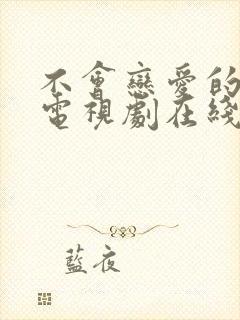 不會戀愛的
電視劇在綫
藍夜